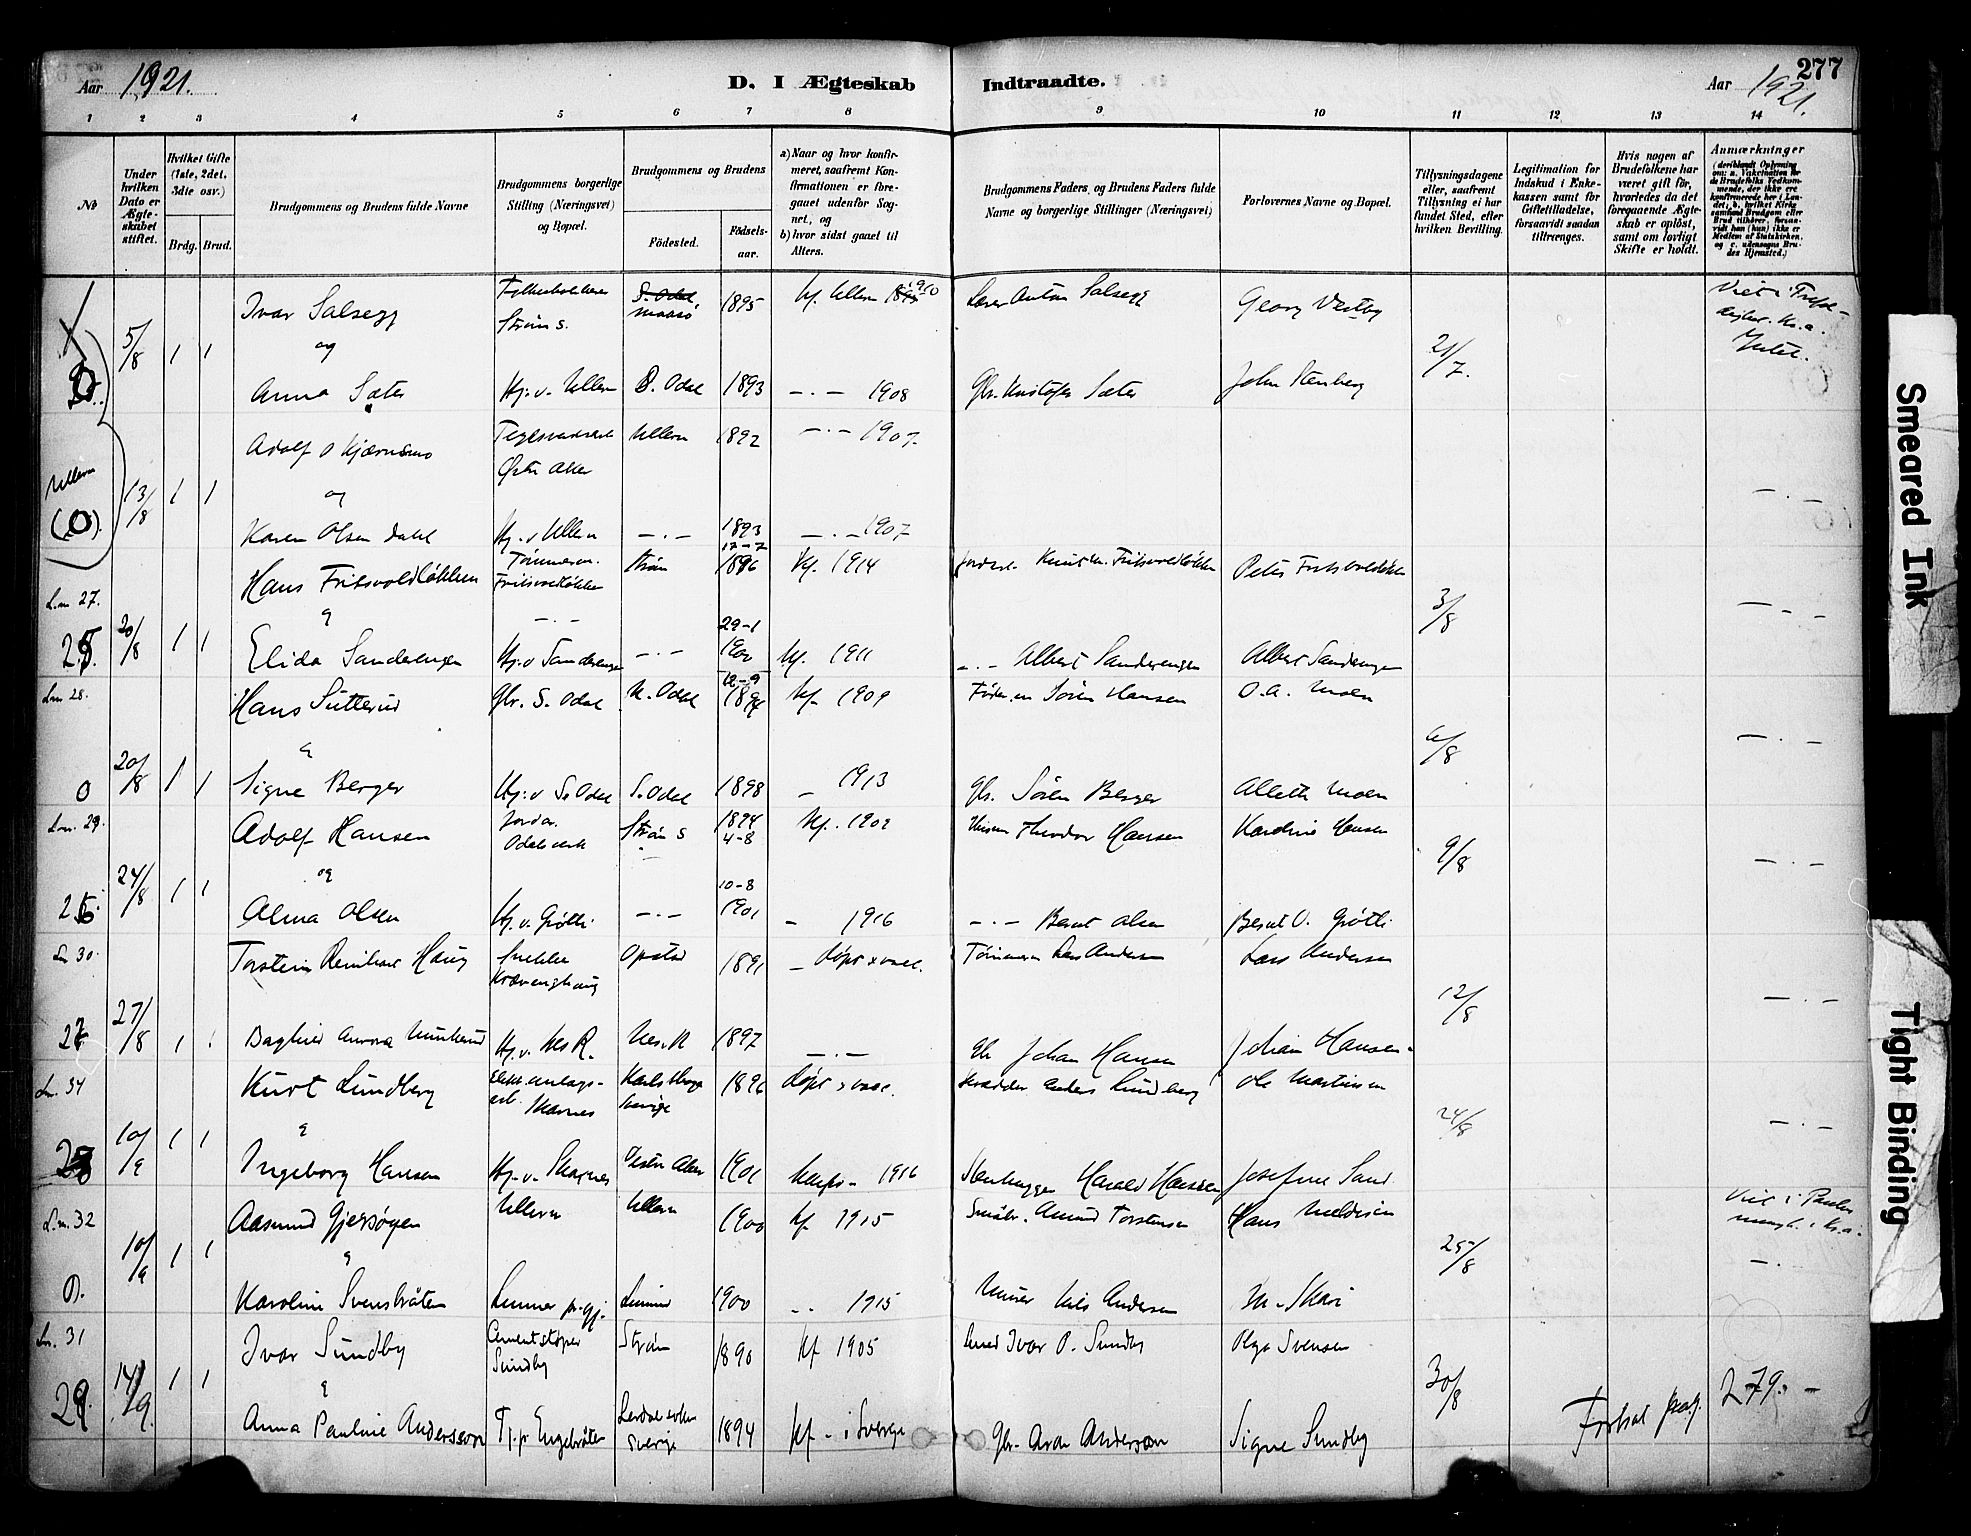 Aar 1921.
D. I Ægteskab Indtraadte.
Aar 1921.
277
1 2 3 4 5 6 7 8 9 10 11 12 13 14
No
Under hvilken Dato er Ægteskabet stiftet.
Hvilket Gifte (1ste, 2det, 3die osv.)
Brdg. Brud.
Brudgommens og Brudens fulde Navne
Brudgommens borgerlige Stilling (Næringsvei) og Bopæl.
Brudgommens og Brudens
Fødested. Fødselsaar.
a) Naar og hvor konfirmeret, saafremt Konfirmationen er foregaaet udenfor Sognet, og
b) hvor sidst gaaet til Alters.
Brudgommens Faders og Brudens Faders fulde Navne og borgerlige Stillinger (Næringsvei)
Forlovernes Navne og Bopæl.
Tillysningsdagene eller, saafremt Tillysning ei har fundet Sted, efter hvilken Bevilling.
Legitimation for Indskud i Enkekassen samt for Giftetilladelse, forsaavidt saadan tiltrænges.
Hvis nogen af Brudefolkene har været gift før, hvorledes da det foregaaende Ægteskab er opløst, samt om lovligt Skifte er holdt.
Anmærkninger (deriblandt Oplysning om: a. Vaccination for de Brudefolks Vedkommende, der ikke ere konfirmerede her i Landet; b. hvilket Kirkesamfund Brudgom eller Brud tilhører, forsaavidt han (hun) ikke er Medlem af Statskirken, og c. udensogns Brudes Hjemsted.)
Ivar Salsegg Strøm s. 1895 kf. Ullern 1910 Lærer Anton Salsegg Georg Vestby
5/8 1 1 og 21/7.
Anna Sæter Hj. v. Ullern S. Odal 1893 -.- 1908 Gbr. Kristofer Sæter John Stenberg
Adolf O Kjærnsmo Østre Aker Ullern 1892 -.- 1907.
Ullern (0). 13/8 1 1 og -.-
Karen Olsen Dahl Hj. v Ullern -.- 1893 -.- 1907
Hans Fritsvoldløkken Tømmerm. Fritsvoldløkken Strøm 17-7 1896 kf. 1914 Fritsvoldløkken Peter Fritsvoldløkken
L.m 27. 3/8 -.-
25. 20/8 1 1 Elida Sanderengen Hj. v Sanderengen -.- 29-1 1900 kf. 1911 -.- Albert Sanderengen Albert Sanderengen
Lm 28. Hans Sutterud Gbr. S. Odal N. Odal 12-9 1894 kf. 1909 Søren Hansen O. A. Moen
6/8 -.-
0 20/8 1 1 Signe Berger Hj. v S. Odal S. Odal 1898 - 1913 Gbr. Søren Berger Alette Moen
Lm. 29. Adolf Hansen Odalsverk Strøm s 1894 4-8 kf. 1909 Theodor Hansen Karoline Hansen
24/8 1 1 og 9/8 -.-
26. Alma Olsen Hj. v. Grøtli -.- 10-8 1901 - 1916 -.- Bernt Olsen Bernt O. Grøtli
L. 30. Torstein Reinhart Haug Snekker Opstad 1891 - døpt & vacc. Tømmerm Lars Andersen Lars Andersen
12/8 -.-
27 27/8 1 1 Dagfrid Aurora Munkerud Hj. v. Nes R. Nes. R 1897 -.- Gbr Johan Hansen Johan Hansen
L. 34 Kurt Lundberg Skarnes Sverige 1896 døpt & vacc. Skrædder Anders Lundberg Ole Martinsen
24/8 -.-
28 10/9 1 1 Ingeborg Hansen Hj. v. Skarnes Vestre Aker 1901 1916 Stenhugger Harald Hansen Josefine Sand
L.m. 32 Aasmund Gjersøyen Ullern Ullern 1900 kf 1915 Småbr. Amund Torstensen Hans
25/8 -.-
0. 10/9 1 1 Karoline Svensbråten Lunner pr. gj. Lunner 1900 -.- 1915 Murer Nils Andersen M. Skari
Lm. 31 Ivar Sundby Cementstøper Sundby Strøm 1890 kf 1905 Smed Ivar P. Sundby Olga Svensen
30/8
29. 14/9. 1 1 Anna Pauline Andersson Tj. p Engebråten Sverige 1894 kf - i Sverige Gbr. Andersson Signe Sundby
Fortsat pag. 279. -
Smeared Ink
Tight Binding